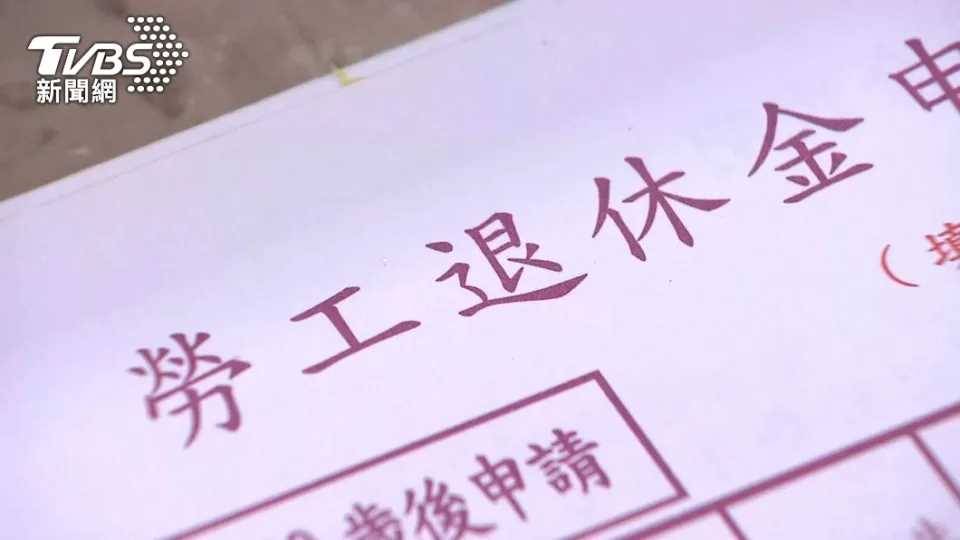 TVBS
新聞網
勞工退休金申
（填
歲後申請